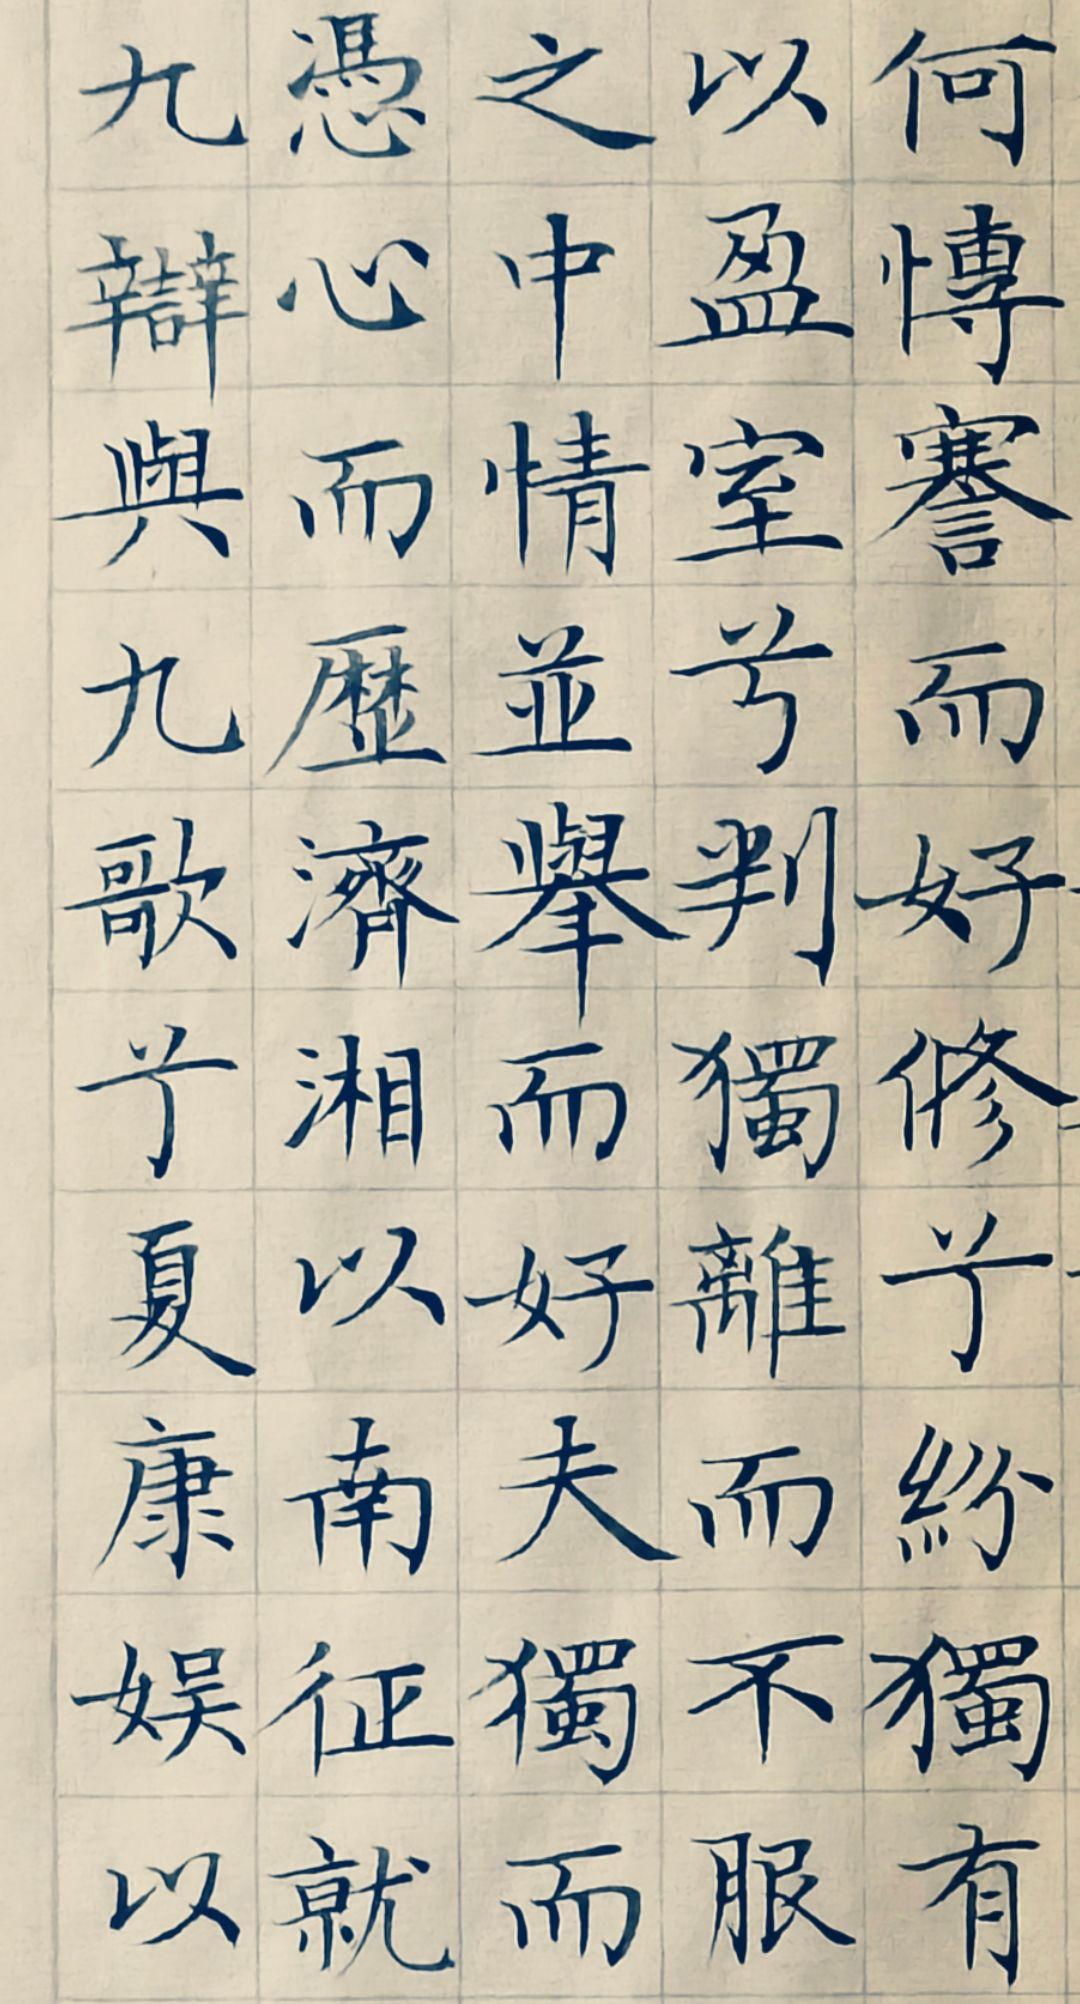 何愽謇而好修兮紛獨有
以盈室兮判獨離而不服
之中情並舉而好夫獨而
憑心而歷濟湘以南征就
九辯與九歌兮夏康娱以